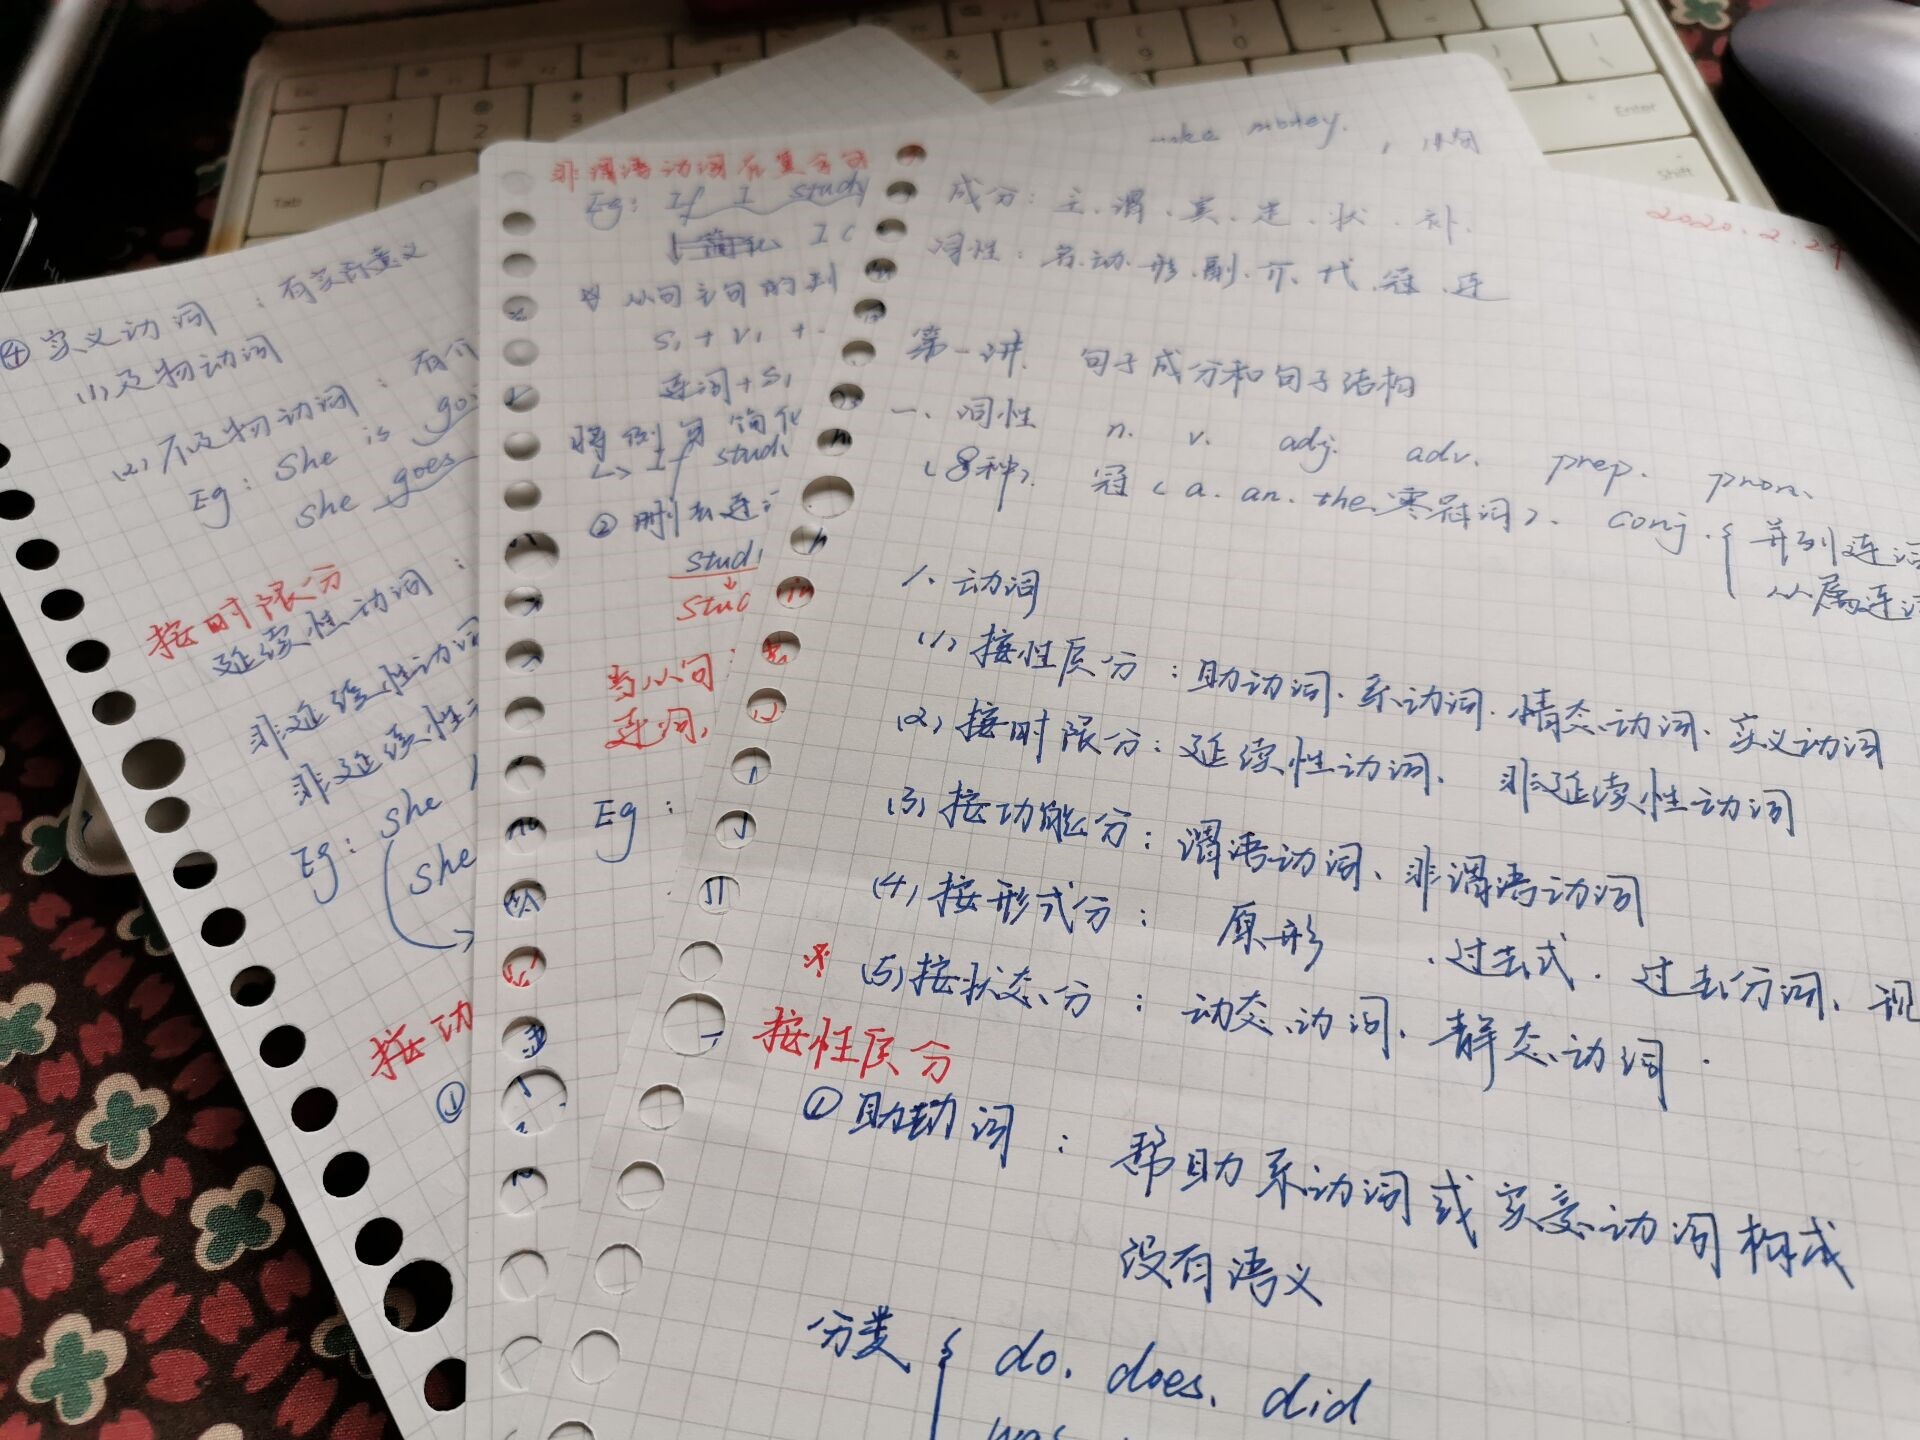 ④实义动词：有实际意义
(1)及物动词
(2)不及物动词：有
Eg: She is
she goes
按时限分
延续性动词：
非延续性动词
非延续性
Eg: she
she
按功
①
非谓语动词在复合句
Eg: If I study
从句主句的
S₁ + V₁ +
连词+S₁
将例句简化
↳ If studi
②删去连
studi
当从句
连词,
Eg:
make money.
2020.2.24
成分：主、谓、宾、定、状、补.
词性：名、动、形、副、介、代、冠、连
第一讲. 句子成分和句子结构
一、词性 n. v. adj. adv. prep. pron.
(8种). 冠(a. an. the.零冠词). conj. { 并列连词
从属连词
1、动词
(1)按性质分：助动词、系动词、情态动词、实义动词
(2)按时限分：延续性动词、非延续性动词
(3)按功能分：谓语动词、非谓语动词
(4)按形式分：原形、过去式、过去分词、现
(5)按状态分：动态动词、静态动词.
按性质分
①助动词：帮助系动词或实意动词构成
没有语义
分类 { do. does. did
Tab
Enter
Shift